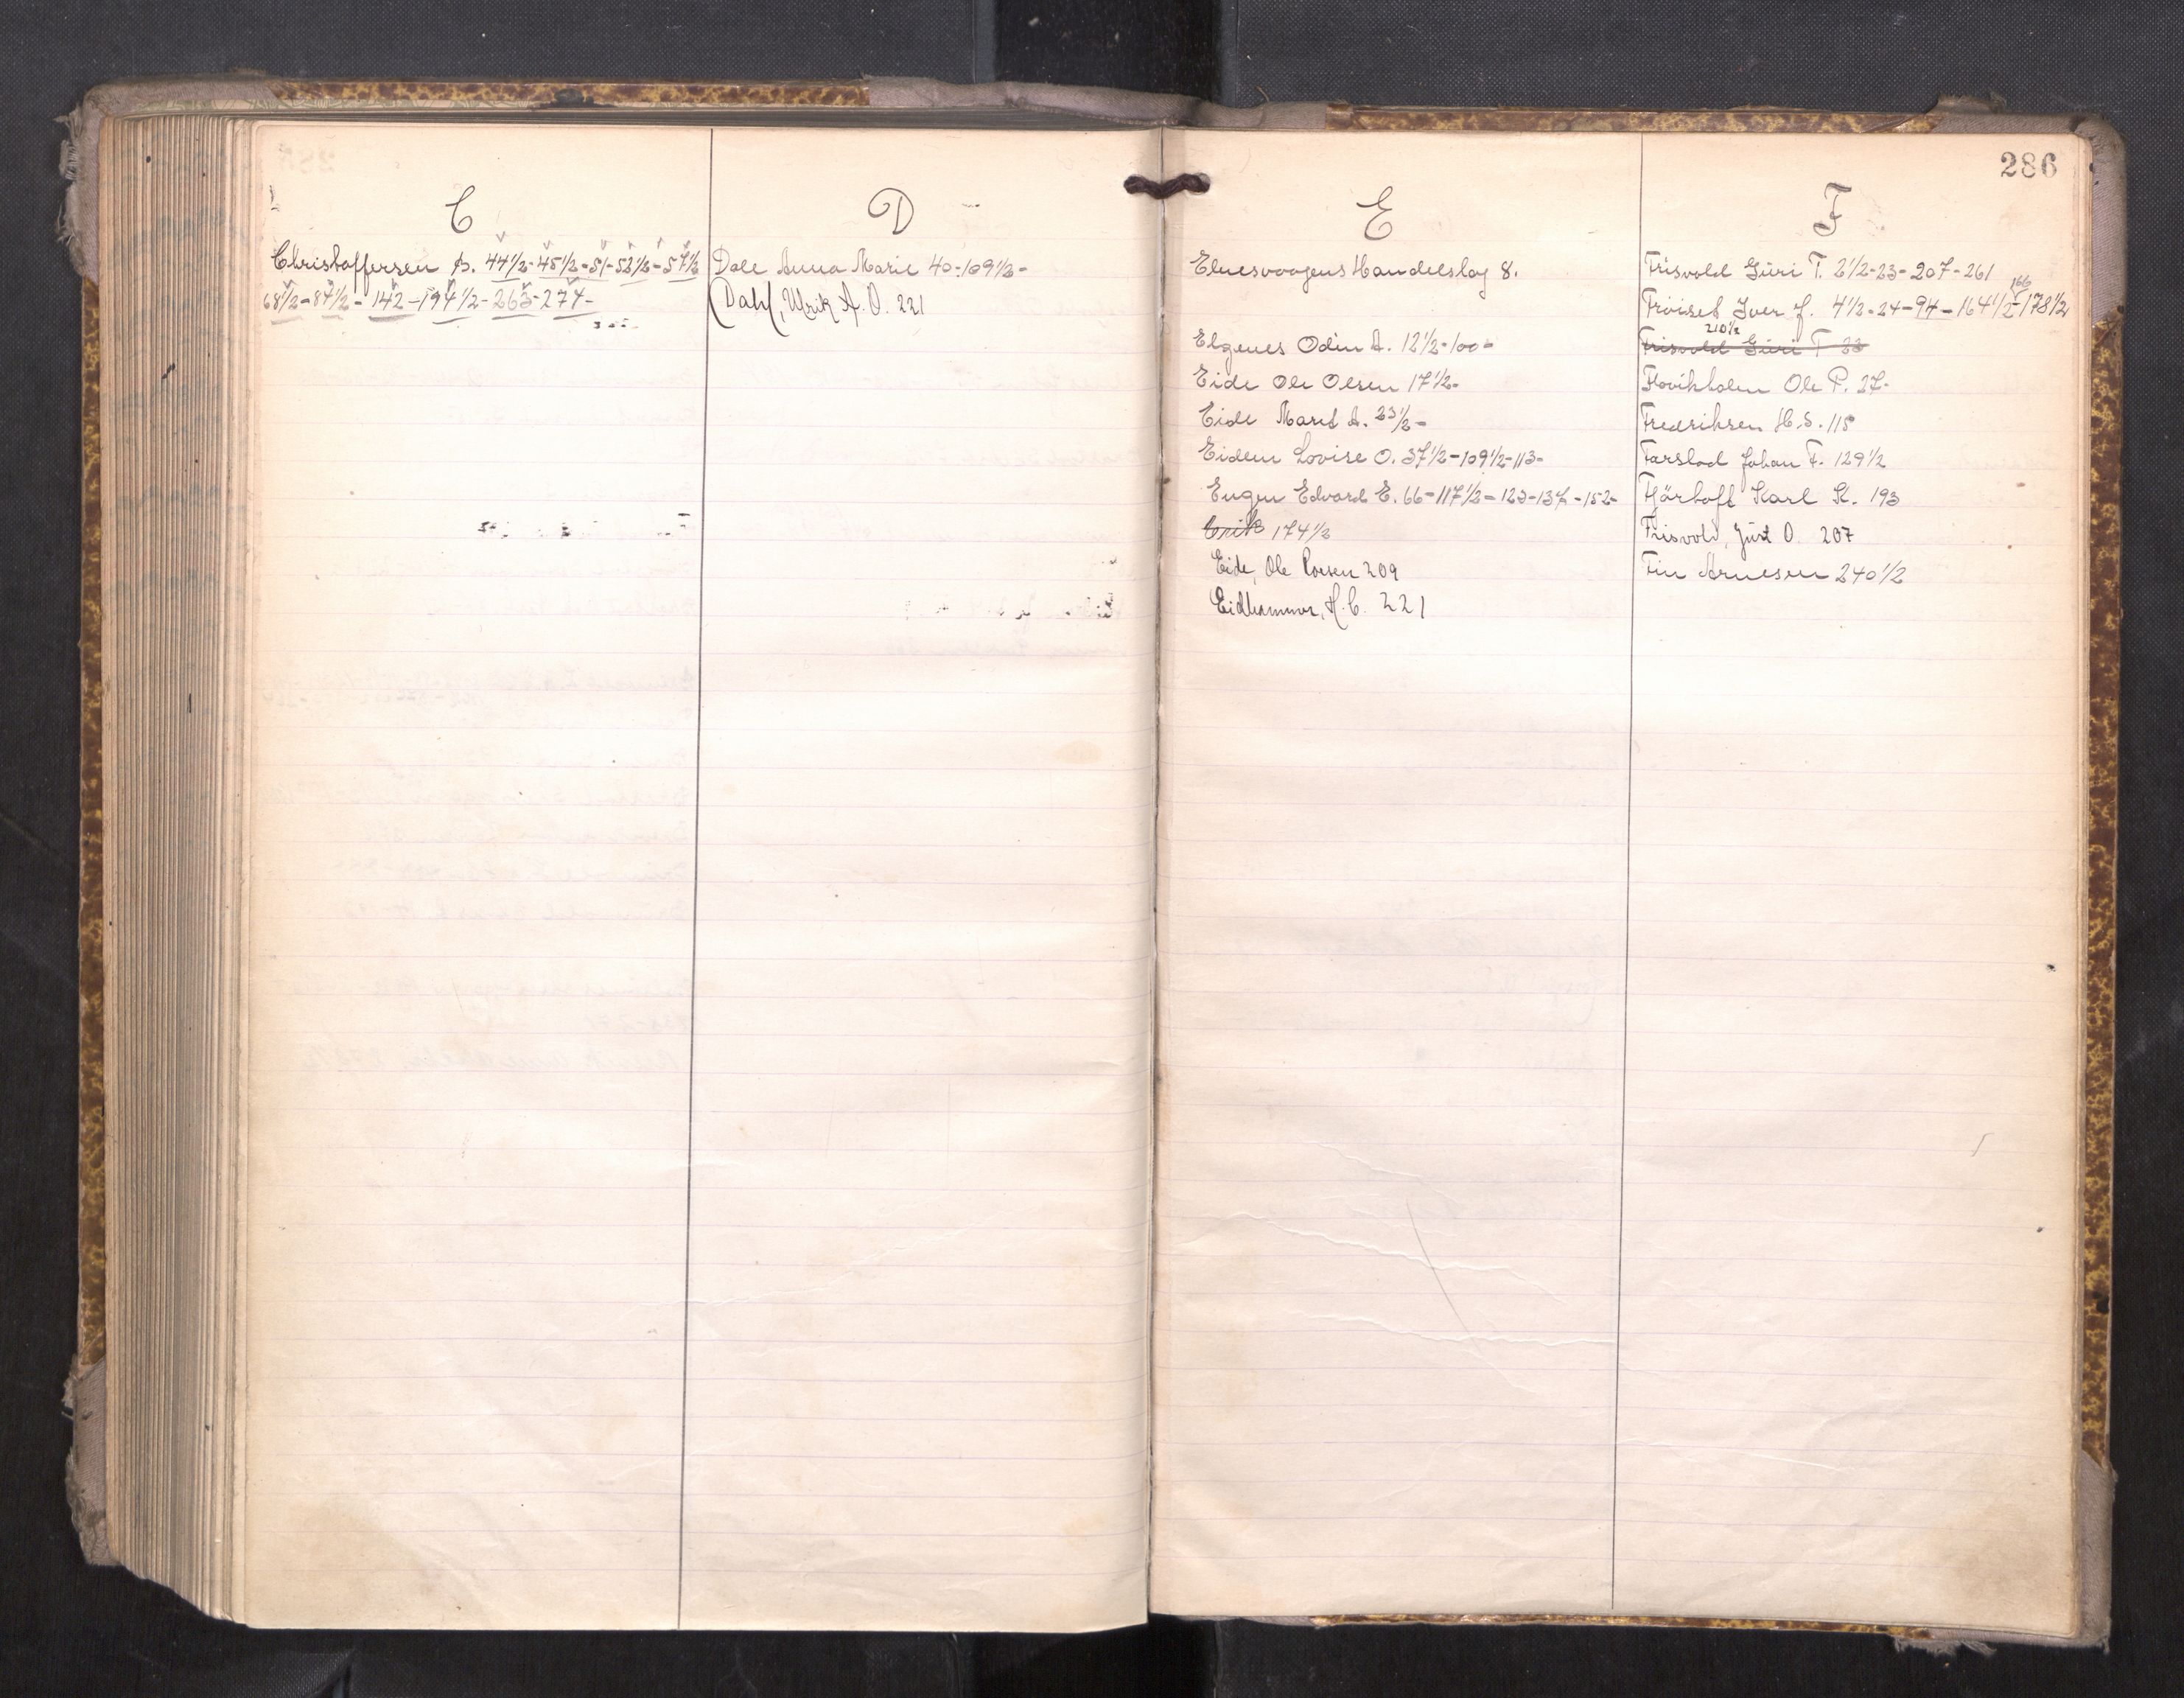 286
C
Christoffersen A. 44 1/2 - 45 1/2 - 51 - 52 1/2 - 57 1/2
68 1/2 - 87 1/2 - 142 - 194 1/2 - 263 - 274 -
D
Dale Anna Marie 40 - 109 1/2 -
Dahl, Ulrik A. O. 221
E
Elnesvaagens Handelslag 8.
Elgenes Odin A. 12 1/2 - 100 -
Eide Ole Olsen 17 1/2 -
Eide Marit A. 23 1/2 -
Eidem Lovise O. 37 1/2 - 109 1/2 - 113 -
Eugen Edvard E. 66 - 117 1/2 - 123 - 137 - 152 -
Erik 174 1/2
Eide, Ole Larsen 209
Eidhammer, H. C. 221
F
Frisvold Guri T. 2 1/2 - 23 - 207 - 261
166
Fröiset Iver J. 4 1/2 - 24 - 94 - 164 1/2 - 178 1/2
210 1/2
Frisvold Guri T 23
Flovikholen Ole P. 27 -
Fredriksen H. S. 115
Farstad Johan F. 129 1/2
Fjörtoft Karl K. 193
Frisvold, Just O. 207
Fin Arnesen 240 1/2